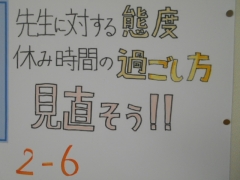 先生に対する態度
休み時間の過ごし方
見直そう!!
2-6